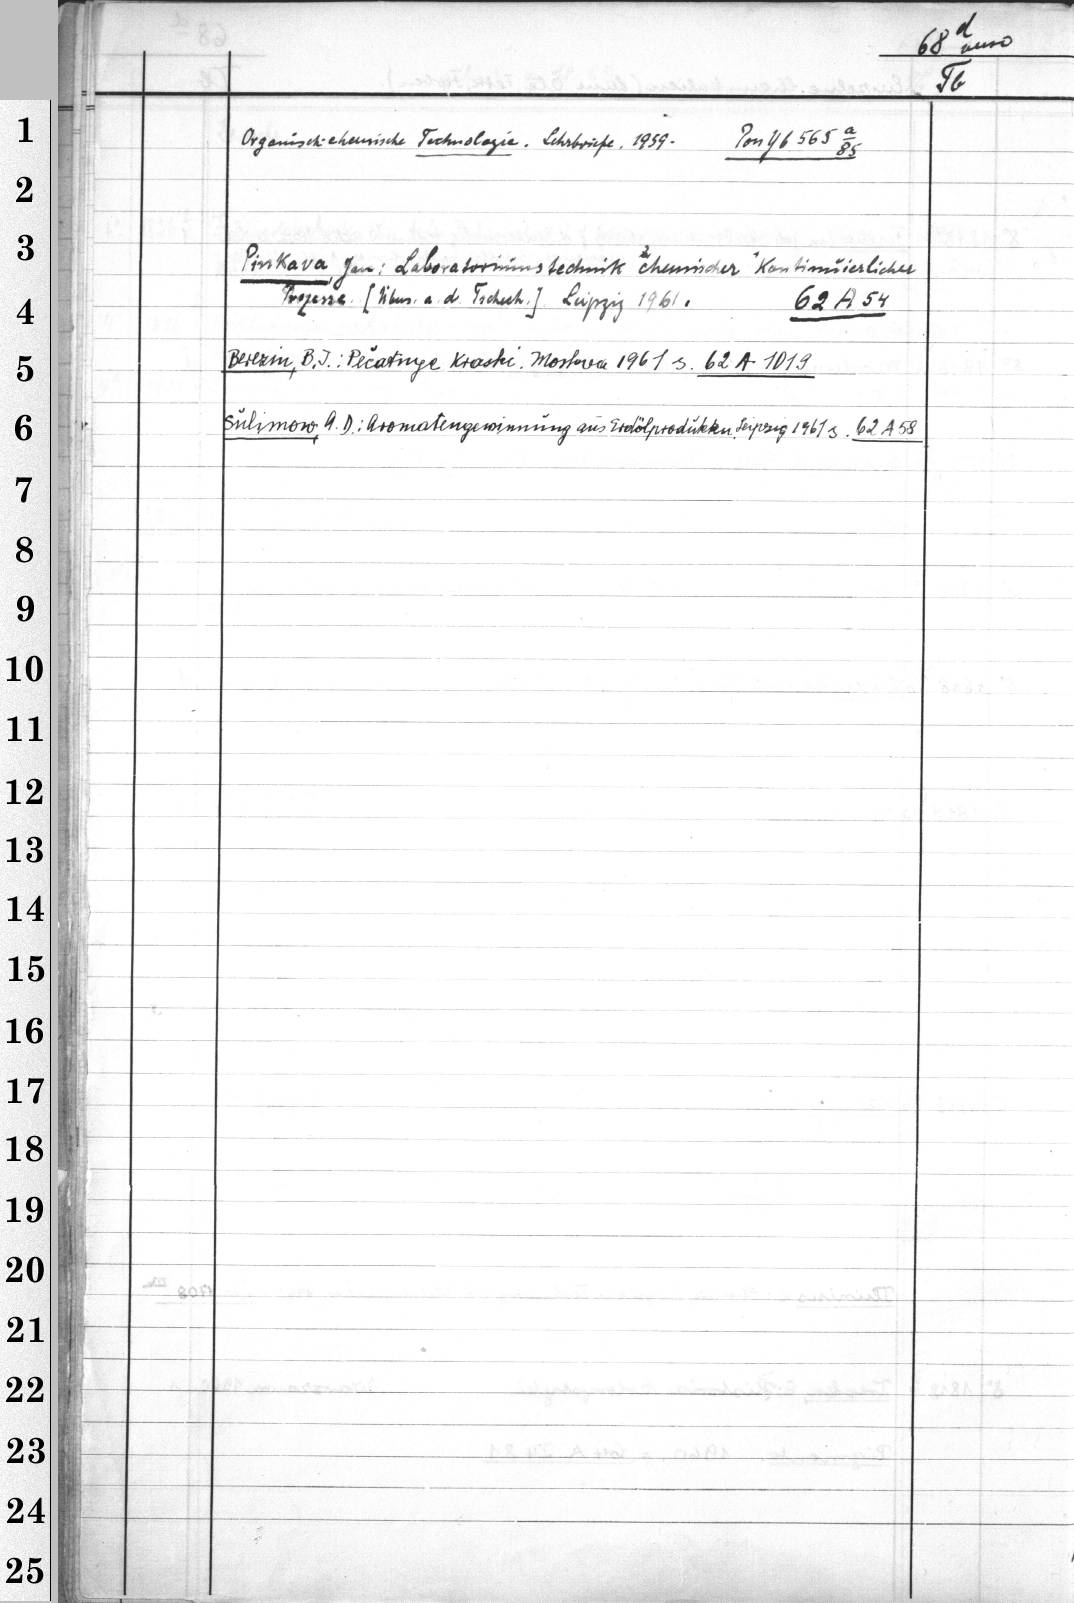 68 d
verso
Tb
1
Organisch-chemische Technologie. Lehrbriefe. 1959. 565 a/85
2
3
Pinkava, Jan: Laboratoriumstechnik ²chemischer ¹Kontinuierlicher
Prozesse. [Übers. a. d. Tschech.] Leipzig 1961. 62 A 54
4
5
Berezin, B.J.: Pečatnye Kraski. Moskva 1961 s. 62 A 1019
6
Sulimow, A.D.: Aromatengewinnung aus Erdölprodukten. Leipzig 1961 s. 62 A 58
7
8
9
10
11
12
13
14
15
16
17
18
19
20
21
22
23
24
25